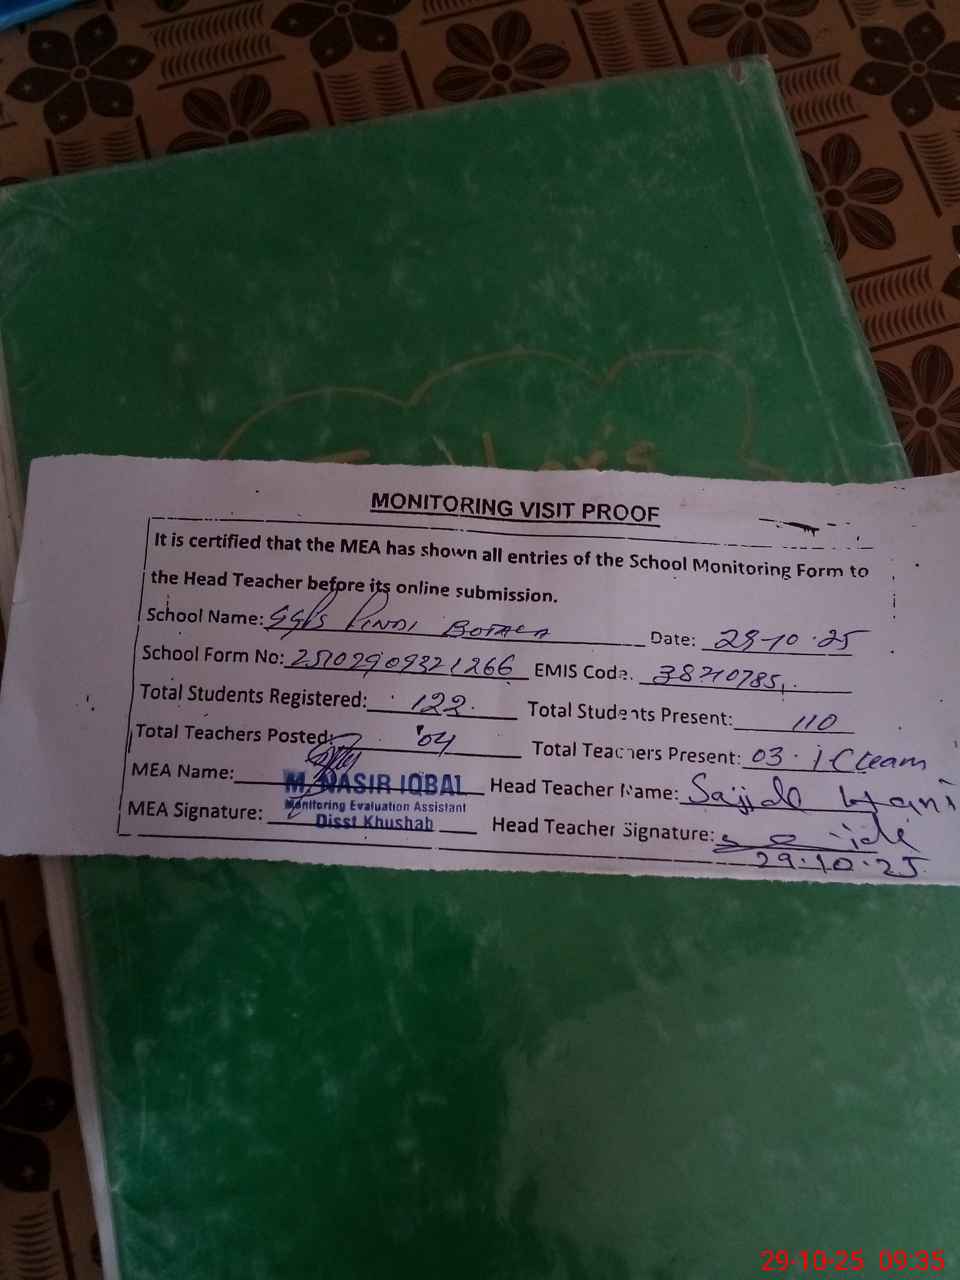 MONITORING VISIT PROOF
It is certified that the MEA has shown all entries of the School Monitoring Form to
the Head Teacher before its online submission.
School Name: GGPS PINDI Date: 29-10-25
School Form No: 25102909321266 EMIS Code. 38210785
Total Students Registered: 122 Total Students Present: 110
Total Teachers Posted: 04 Total Teachers Present: 03
MEA Name: M. NASIR IQBAL Head Teacher Name:
Monitoring Evaluation Assistant
MEA Signature: Disst Khushab Head Teacher Signature:
29.10.25
29-10-25 09:35